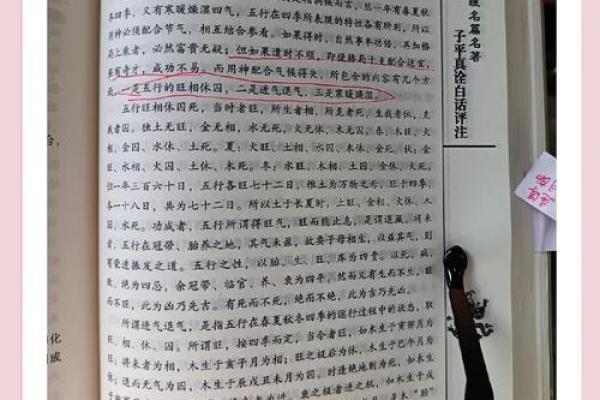 冬四季，又有寒暖燥湿四气，五行在四季所表现的特性各有所别，所以
用神必须配合节气，相互结合参看。如果得时，自然事半功倍，再加格
局上乘者，必然富贵无疑；但如果遭时不顺，即使格局干支配合适宜，
虽有奇才，成功不易。而用神配合气候得失，所包含的内容有几个方
一是五行的旺相休囚，二是进气退气，三是寒暖燥湿。
五行旺相休囚死，当时者旺，所生者相，所克者死，生我者休，克
我者囚。独土无旺，金无相，水无死，火无休，木无囚。春：木旺、火
相、金囚、水休、土死。夏：火旺、土相、水囚、木休、金死。秋：金
旺、水相、火囚、土休、木死。冬：水旺、木相、土囚、金休、火死。
但一年三百六十日，五行各旺七十二日，惟土为万物之母，旺于四季，
各一十八日，共为七十二日。所以土于长夏时，土旺、金相、火休、木
囚、水死。功成者，五行所谓得旺气，旺而能止息，是谓退藏，将来
者，五行在冠带、胎养之地，其气未盈，故委子母相生，以益其气，则
有荣进振发之道。五行之性，以胎、生、旺、库为四贵，以死、病、
败、绝为四忌，余冠带、临官、养、衰为四平，然而又有生不生，旺
而不旺，此为凶乃先吉。有死而不死，绝而不绝，此为吉乃先凶。
所谓进气退气，是指五行在春夏秋冬四季的运行过程中的状态。联
旺、相、休、囚。所谓旺，按四季而定，当令者旺，如木生于寅卯月为
旺；将来者为相，木生于亥子月为相；旺之极后为休，木生于巳午月为
休；退而无气为囚，木生于辰戌丑未月为囚。时逢绝地则为死，如木生
名篇名著
子平真诠白话评注